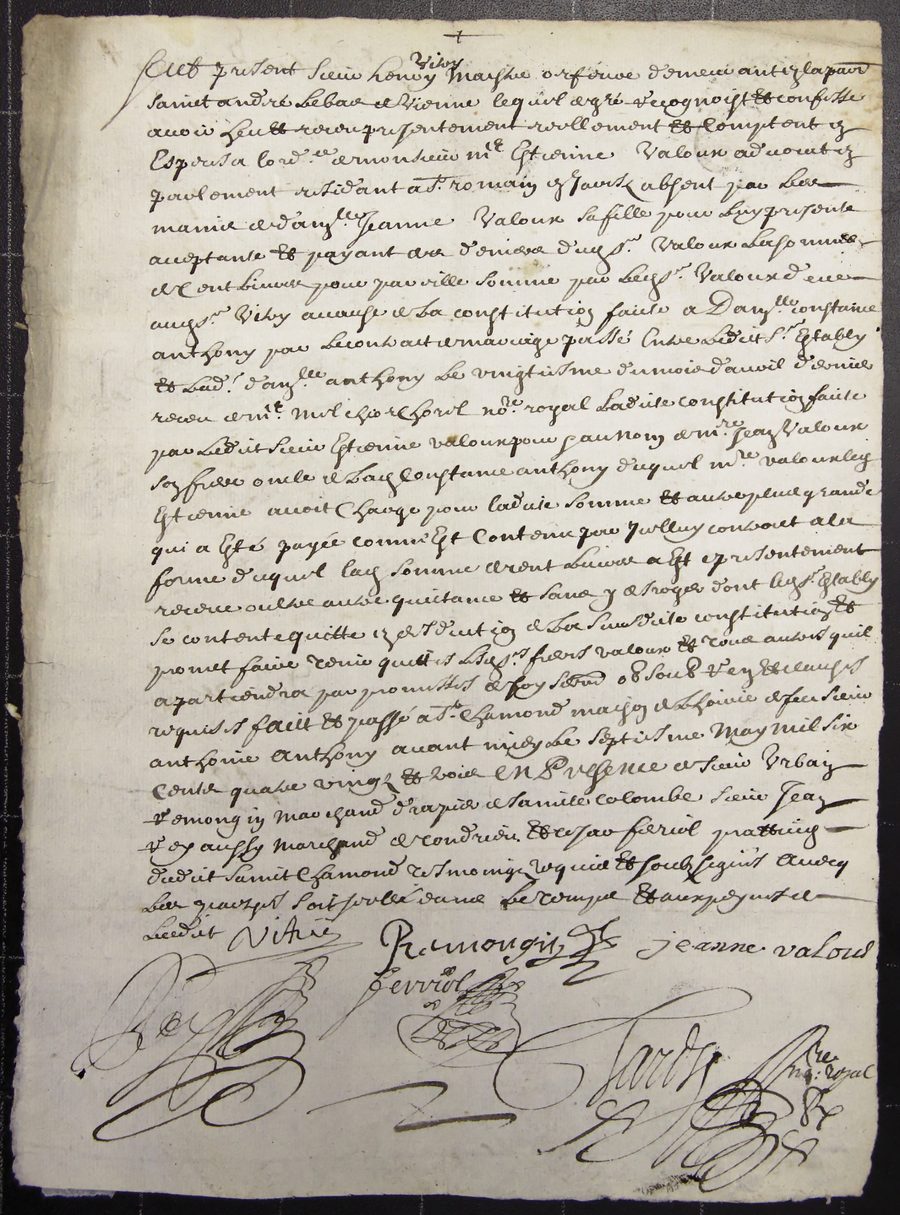 Feut present sieur henry Vitry Maistre orfevre demeurant en la parr
sainct andré Lebas de Vienne lequel de gré recognoist et confesse
avoir heu et receu presentement reellement et Comptent en
Especes a lord ce de monsieur me Estienne Valoux advocat en
parlement residant a St romain en Jarest absent par les
mains de damlle Jeanne Valoux sa fille pour luy presente
acceptante et payant des deniers dud sr Valoux la somme
de Cent livres pour pareille somme par led sr Valoux deue
aud sr Vitry a cause de la constitution faite a Damlle constance
anthony par le contract de mariage passé Entre ledit sr Establÿ
et lad. damlle anthony le vingtiesme du mois d'avril dernier
receu de me Melchior Chorel nore royal ladite constitution faite
par ledit sieur Estienne valoux pour et au nom de mre Jean Valoux
son frere oncle de lad Constance anthony duquel mre valoux led
Estienne avoit Charge pour ladite somme et autre plus grande
qui a Esté payée comme Est Contenu par Jcelluy contract a la
forme duquel lad somme de cent livres a Esté presentement
receue oultre autre quittance et sans y desroger dont led sr Estably
se contente quitte en desduction de la susdite constitution et
promet faire tenir quittes lesd srs freres valoux et tous autres quil
apartiendra par promesses de foy serment obl soub ren et clauses
requises faict et passé a St Chamond maison de lhoirie de feu sieur
anthoine Anthony avant midy le septiesme May mil six
Cents quatre vingt et trois EN Presence de sieur Urbain
remongin Marchand drapier de saincte Colombe sieur Jean
rey aussy Marchand de Condrieu et cesar ferriol praticien
dudict sainct Chamond tesmoings requis et soubsignés avecq
les parties soit scellé dans le temps et aux peynes de
Leedict Vitry
Remongin Jeanne valous
ferriol
Rey
Tardy nore royal